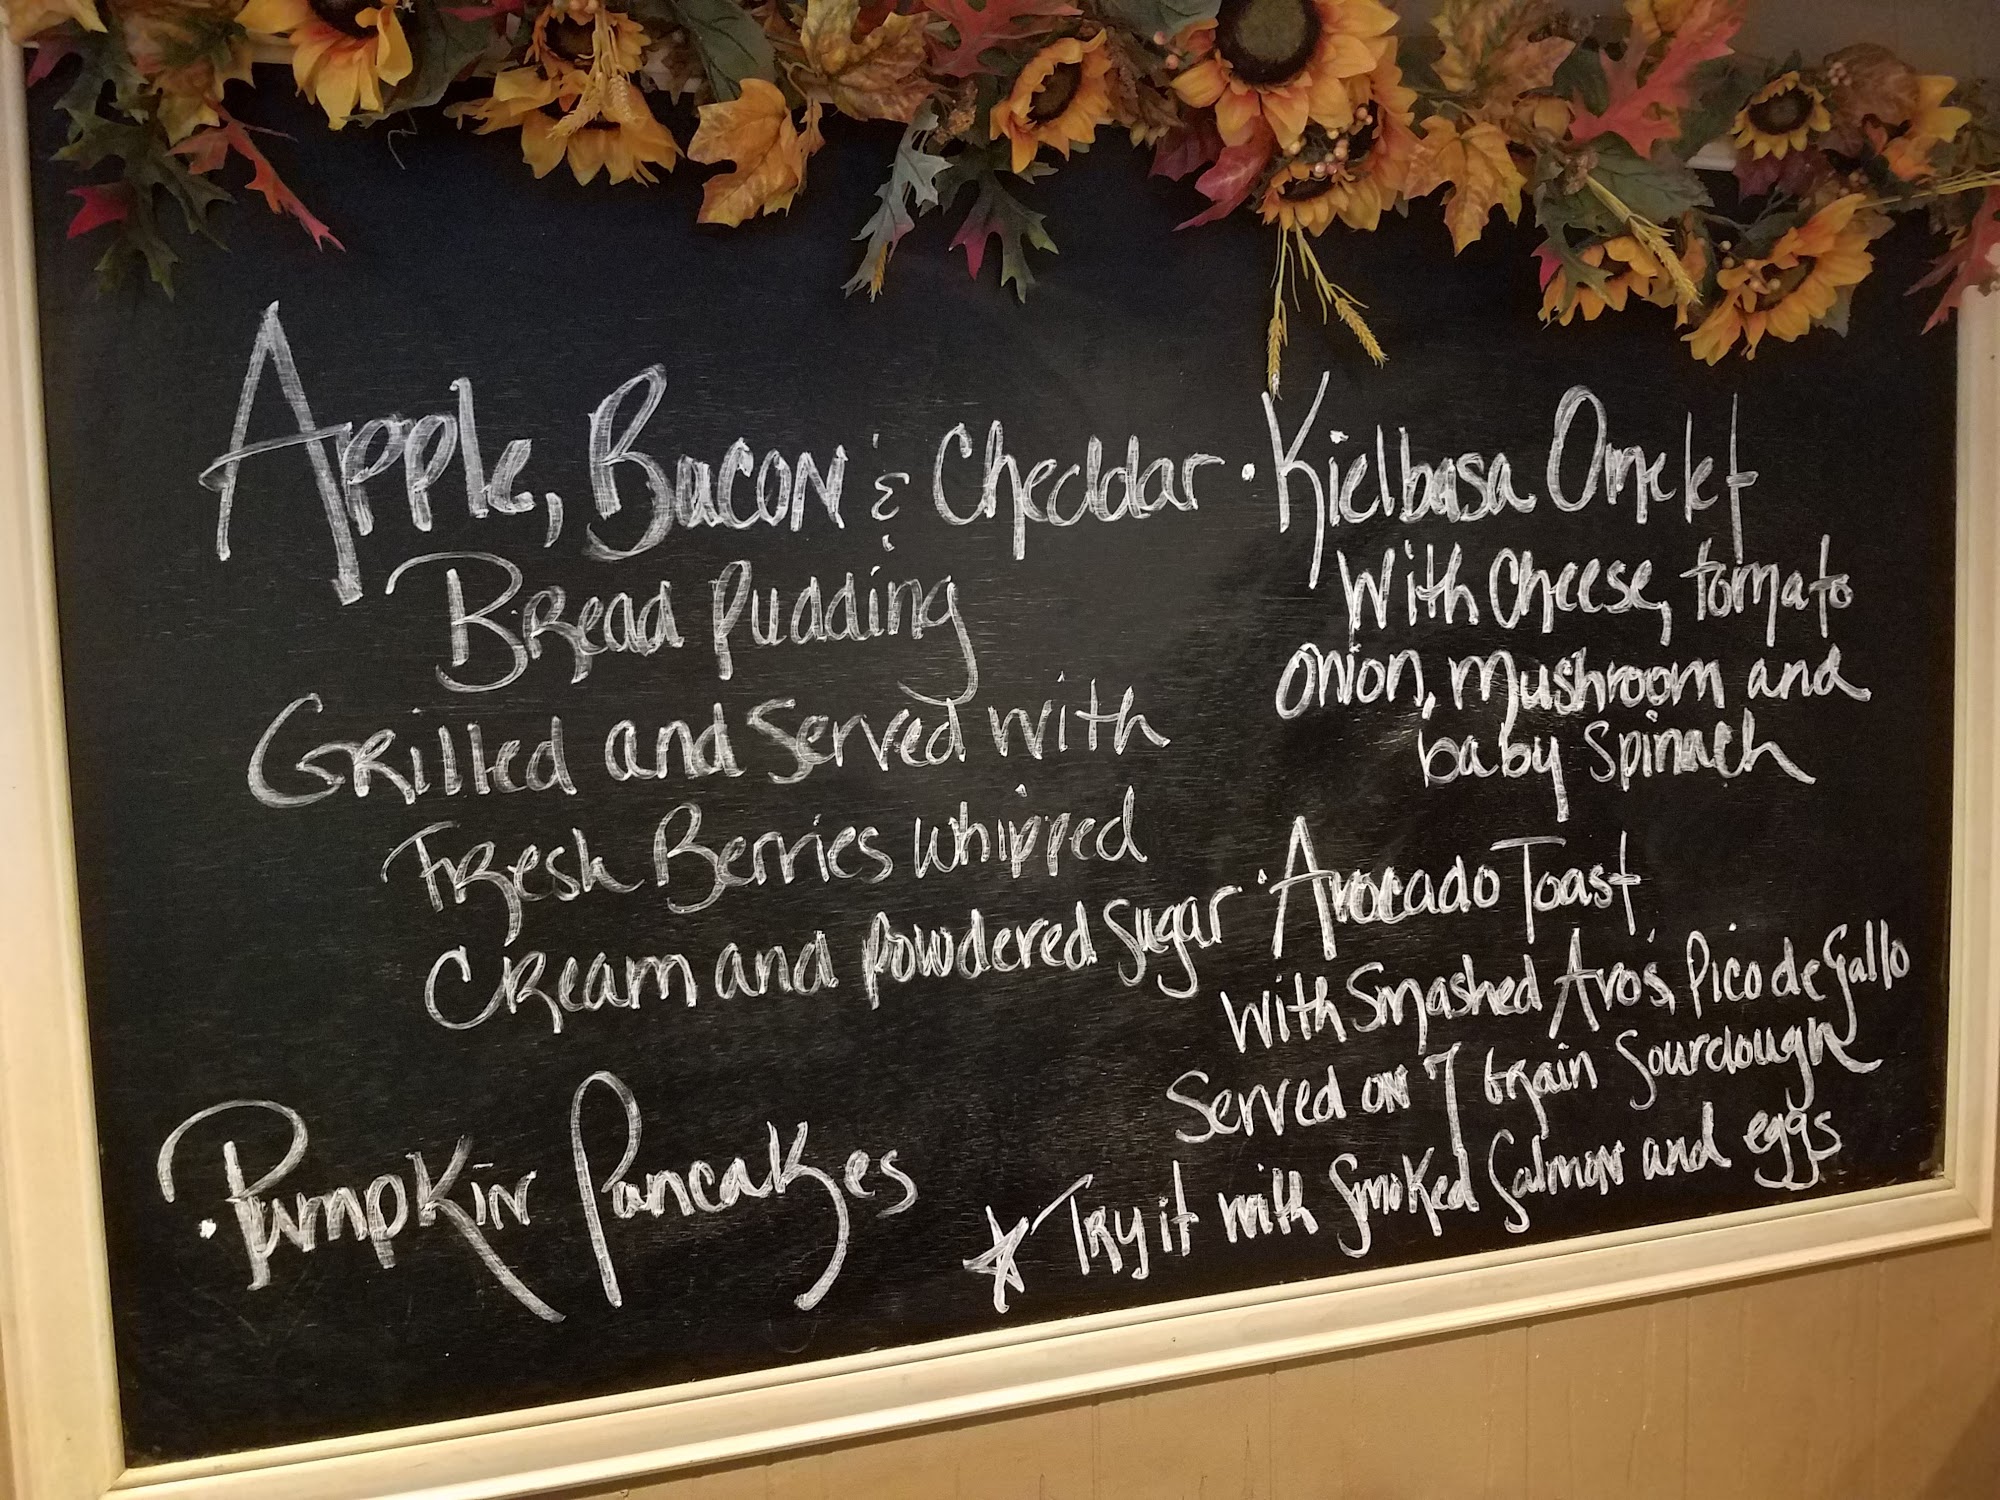 Apple, Bacon & Cheddar
Bread Pudding
Grilled and Served with
Fresh Berries whipped
Cream and powdered sugar
· Pumpkin Pancakes
· Kielbasa Omelet
with Cheese, tomato
onion, mushroom and
baby spinach
· Avocado Toast
with Smashed Avo's, Pico de Gallo
Served on 7 Grain Sourdough
☆ Try it with Smoked Salmon and eggs